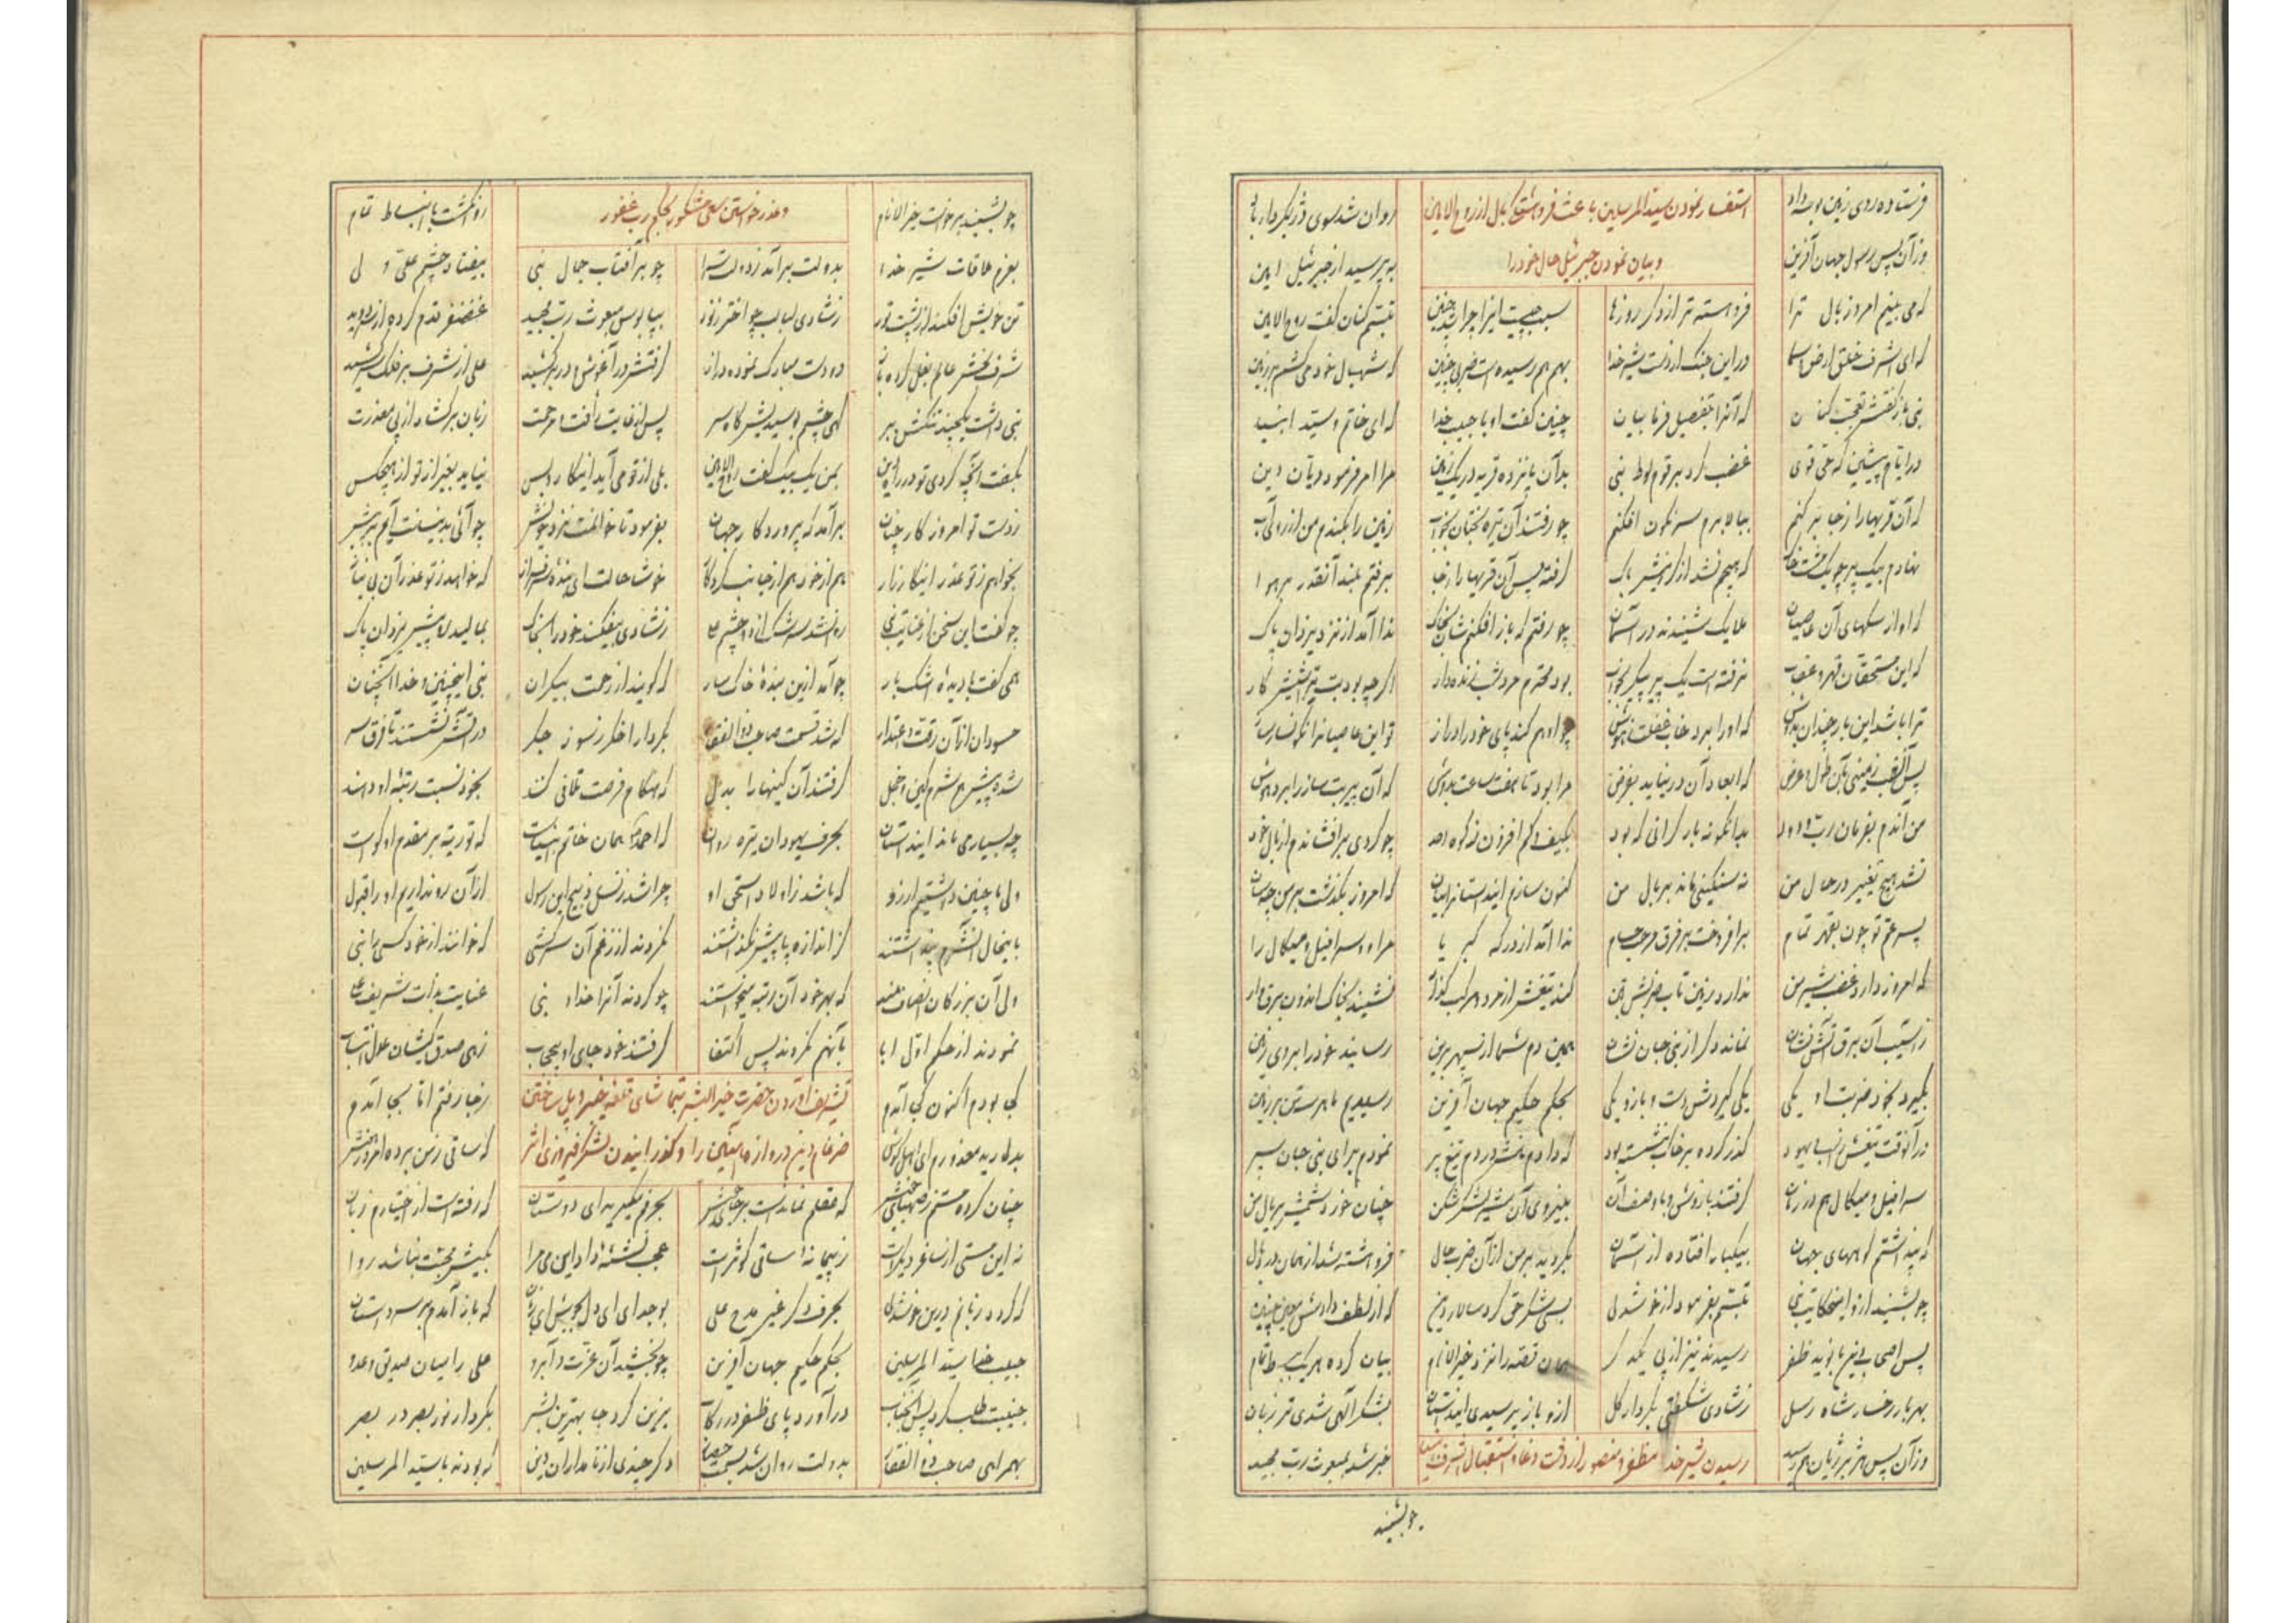 فرستاده روی زمین بوسه داد استفسار نمودن سید المرسلین باعث فروهشتگی بال از روح الامین روان شد سوی دژ بکردار باد
وزآن پس رسول جهان آفرین و بیان نمودن جبرئیل حال خود را بپرسید از جبرئیل امین
که می بینم امروز بال ترا فروهشته تر از دگر روزها سبب چیست اینرا چرا شد چنین تبسم کنان گفت روح الامین
که ای اشرف خلق ارض و سما در این جنگ از دست شیر خدا بهم هم رسیده است ضربی چنین که شهبال خود می کشم بر زمین
نبی باز گفتش تعجب کنان که آنرا بتفصیل فرما بیان چنین گفت او با حبیب خدا که ای خاتم و سید انبیا
در ایام پیشین که حی قوی غضب کرد بر قوم لوط نبی بدآن پانزده قریه در یک زمین مرا امر فرمود دیان دین
که آن قریها را ز جا بر کنم ببالا برم سرنگون افکنم چو رفتند آن تیره بختان بخواب زمین را بکندم من از روی آب
نهادم بیک پر چو یک مشت خاک که هیچم نشد از گرانیش باک گرفته پس آن قریها را ز جا برفتم بلند آنقدر بر هوا
که آواز سگهای آن عاصیان ملایک شنیدند در آسمان چو رفتم که باز افکنم شان بخاک ندا آمد از نزد یزدان پاک
که این مستحقان قهر و عذاب نرفته است یک پیر پیکر بخواب بود محترم مرد شب زنده دار اگرچه بود بت پرستیش کار
ترا باشد این بار چندان بدوش که او را برد خواب غفلت ز هوش چو او هم کند پای خود را دراز تو این عاصیانرا نگونسار ساز
پس آنقطعه زمینی بآن طول و عرض که ابعاد آن در نیاید بفرض مرا بود تا هفت ساعت بدوش که آن پیر بت ساز را برد هوش
من اندم بفرمان رب ودود بدانگونه بار گرانی که بود بکیف و کم افزون ز کوه احد چو گردی برافشاندم از بال خود
نشد هیچ تغییر در حال من نه سنگینیی ماند بر بال من کنون سازم این داستانرا بیان که امروز بگذشت بر من چه سان
پسر عم تو چون بقهر تمام برافراخت بر فرق مرحب حسام ندا آمد از درگه کبریا مرا و سرافیل و میکال را
که امروز دارد غضب شیر من ندارد زمین تاب ضربش بتن کند تیغش از مرد و مرکب گذار نشیند بخاک اندرون برق وار
ز آسیب آن برق آتش فشان نماند دگر از بنی جان نشان همین دم شما از سپهر برین رسانید خود را بروی زمین
بگیرد بخود ضربت او یکی یکی گیردش دست و بازو یکی بحکم حکیم جهان آفرین رسیدیم ما هر سه تن بر زمین
در آنوقت تیغش بسر یهود گذر کرده بر خاک بنشسته بود که دادم بشر در دم تیغ پر نمودم برای بنی جان سپر
سرافیل و میکال هم در زمان گرفتند بازوش و با وصف آن بنیروی آن شیر لشکر شکن چنان خورد شمشیر بر بال من
که پنداشتم کوههای جهان بیکبار افتاده از آسمان بگردید بر من از آن ضرب حال فروهشته شد از همان درد بال
چو بشنید ازو این حکایت نبی تبسم بفرمود از خوشدلی بسی شکر حق کرد سالار دین که از لطف دادش معین چنین
پس اصحاب نیز با نوید ظفر رسیدند نیز از پی یکدگر همان قصه را نزد خیر الانام بیان کرده هر یک ببسط تمام
بهر بار رخسار شاه رسل ز شادی شگفتی بکردار گل ازو باز پرسیدی این داستان بشکر آلهی شدی تر زبان
وزآن پس هژبر ژیان هم رسید رسیدن شیر خدا مظفر و منصور از دغا و استقبال خبر شد بمبعوث رب مجید
چو بشنید
چو بشنید برخواست خیر الانام و عذر خواستن سعی مشکور بحکم رب غفور روان گشت با انبساط تمام
بعزم ملاقات شیر خدا بدولت برآمد ز دولت سرا چو بر آفتاب جمال نبی بیفتاد چشم علی ولی
تن خویش افکند از پشت بور ز شادی لبالب چو اختر ز نور بپا بوس مبعوث رب مجید غضنفر قدم کرده از سر دوید
شرف بخش عالم بغل کرده باز دو دست مبارک نموده دراز گرفتش در آغوش و در بر کشید علی از شرف سر بر فلک بر کشید
نبی داشت یکچند تنگش ببر گهی چشم بوسید پیشش گاه سر پس از غایت رأفت و مرحمت زبان برکشاد از پی معذرت
بگفت آنچه کردی تو در راه دین بمن یک بیک گفت روح الامین بلی از تو می آید اینکار و بس نیاید بغیر از تو از هیچکس
ز دست تو امروز کار چنان برآمد که پروردگار جهان بفرمود تا خوانمت نزد خویش چو آئی بدینسانت آیم به پیش
بخواهم ز تو عذر اینکارزار هم از خود هم از جانب کردگار خوشا حالت ای بنده سرفراز که خواهد ز تو عذر آن بی نیاز
چو گفت این سخن از عنایت نبی روانشد سرشک از دو چشم علی ز شادی بیفکند خود را بخاک بمالید رو پیش یزدان پاک
همی گفت با دیده اشکبار چو آمد ازین بنده خاکسار که گویند از رحمت بیکران نبی اینچنین و خدا آنچنان
حسودان از آن رفعت و اعتبار که شد قسمت صاحب ذوالفقار بکردار اخگر ز سوز جگر در آتش نشستند تا فرق سر
شده پیش هم شرمگین و خجل گرفتند آن کینها را بدل که هنگام فرصت تلافی کنند بخود نسبت رتبه او دهند
چه بسیار می ماند این داستان بحرف یهودان تیره روان که احمد همان خاتم انبیاست که توریت بر مقدم او گواست
ولی ما چنین داشتیم آرزو که باشد ز اولاد اسحق او چرا شد ز نسل ذبیح این رسول از آن رو نداریم او را قبول
باینحال آنشرم پنداشتند کز اندازه پا پیش نگذاشتند نکردند از زعم آن سرکشی که خوانند از خود کسی را نبی
ولی آن بزرگان انصاف مند که بهر خود آن رتبه میخواستند چو کردند آنرا خدا و نبی عنایت بذات شریف علی
نمودند از حکم اول ابا بآنهم نکردند پس اکتفا گرفتند خود جای او بیحجاب زهی صدق کیشان عدل انتساب
کجا بودم اکنون کجا آمدم تشریف آوردن حضرت خیر البشر بتماشای قلعه خیبر و پل ساختن ز جا رفتم اما بجا آمدم
بداریدم معذورم ای اهل هوش ضرغام دین دروازه آهنین را و گذرانیدن لشکر فیروزی اثر که ساقی ز من برده امروز هوش
چنان کرده مستم ز صهبای خویش که عقلم نماندست بر جای خویش بحرفم مگیرید ای دوستان که رفته است از اختیارم زبان
نه این مستی از ساغر دیگر است ز پیمانه ساقی کوثر است عجب نشئه داد این می مرا بکیش محبت نباشد روا
که گردد زبانم درین خوشدلی بحرف دگر غیر مدح علی بوجد ای ای دل بجوش ای زبان که باز آمدم بر سر داستان
حبیب خدا سید المرسلین بحکم حکیم جهان آفرین چو بخشید آن عزت و آبرو علی را میان صدیق و عدو
جنیبت طلب کرد پس آنجناب درآورد پای ظفر در رکاب بزین کرد جا بهترین بشر بکردار نور بصر در بصر
بهمراهی صاحب ذوالفقار بدولت روان شد بسمت حصار دگر چندی از نامداران دین که بودند با سید المرسلین